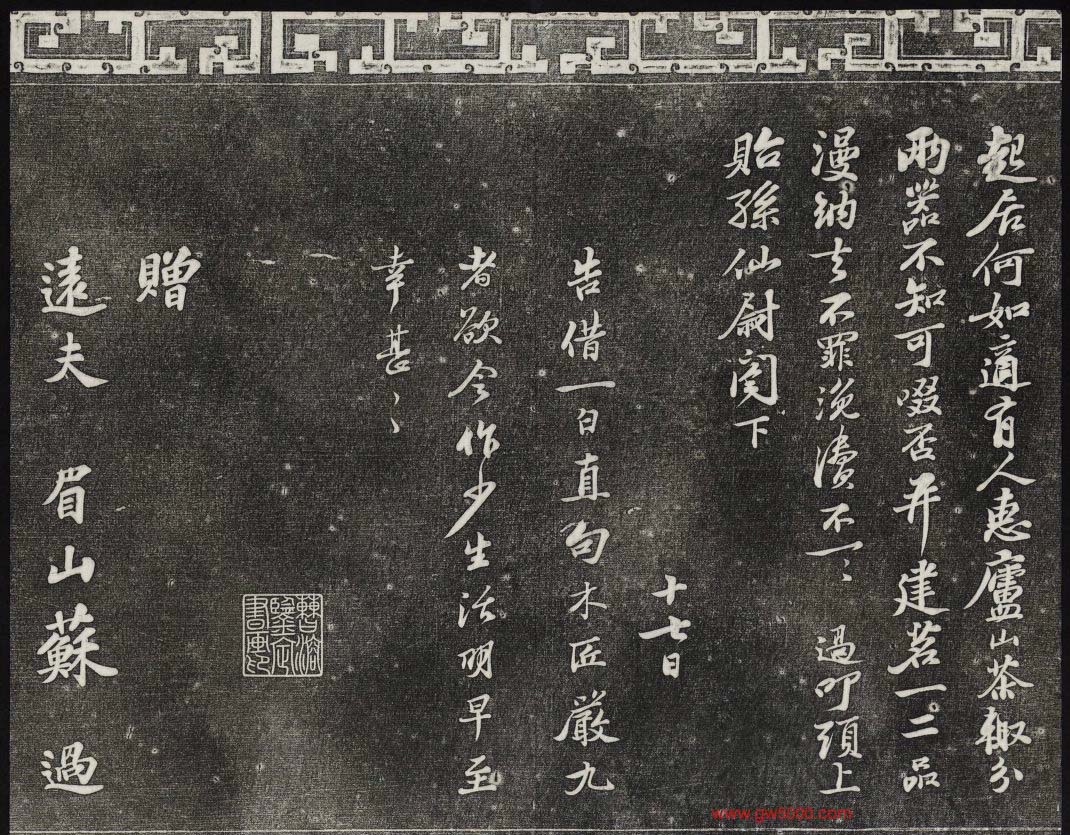 起居何如適有人惠廬山茶輙分
兩器不知可啜否并建茗一二品
漫納去不罪浼瀆不一〻 過叩頭上
貽孫仙尉閤下
十七日
告借一白直勾木匠嚴九
者欲令作少生活明早至
幸甚〻
贈
遠夫 眉山蘇過
www.gw8686.com